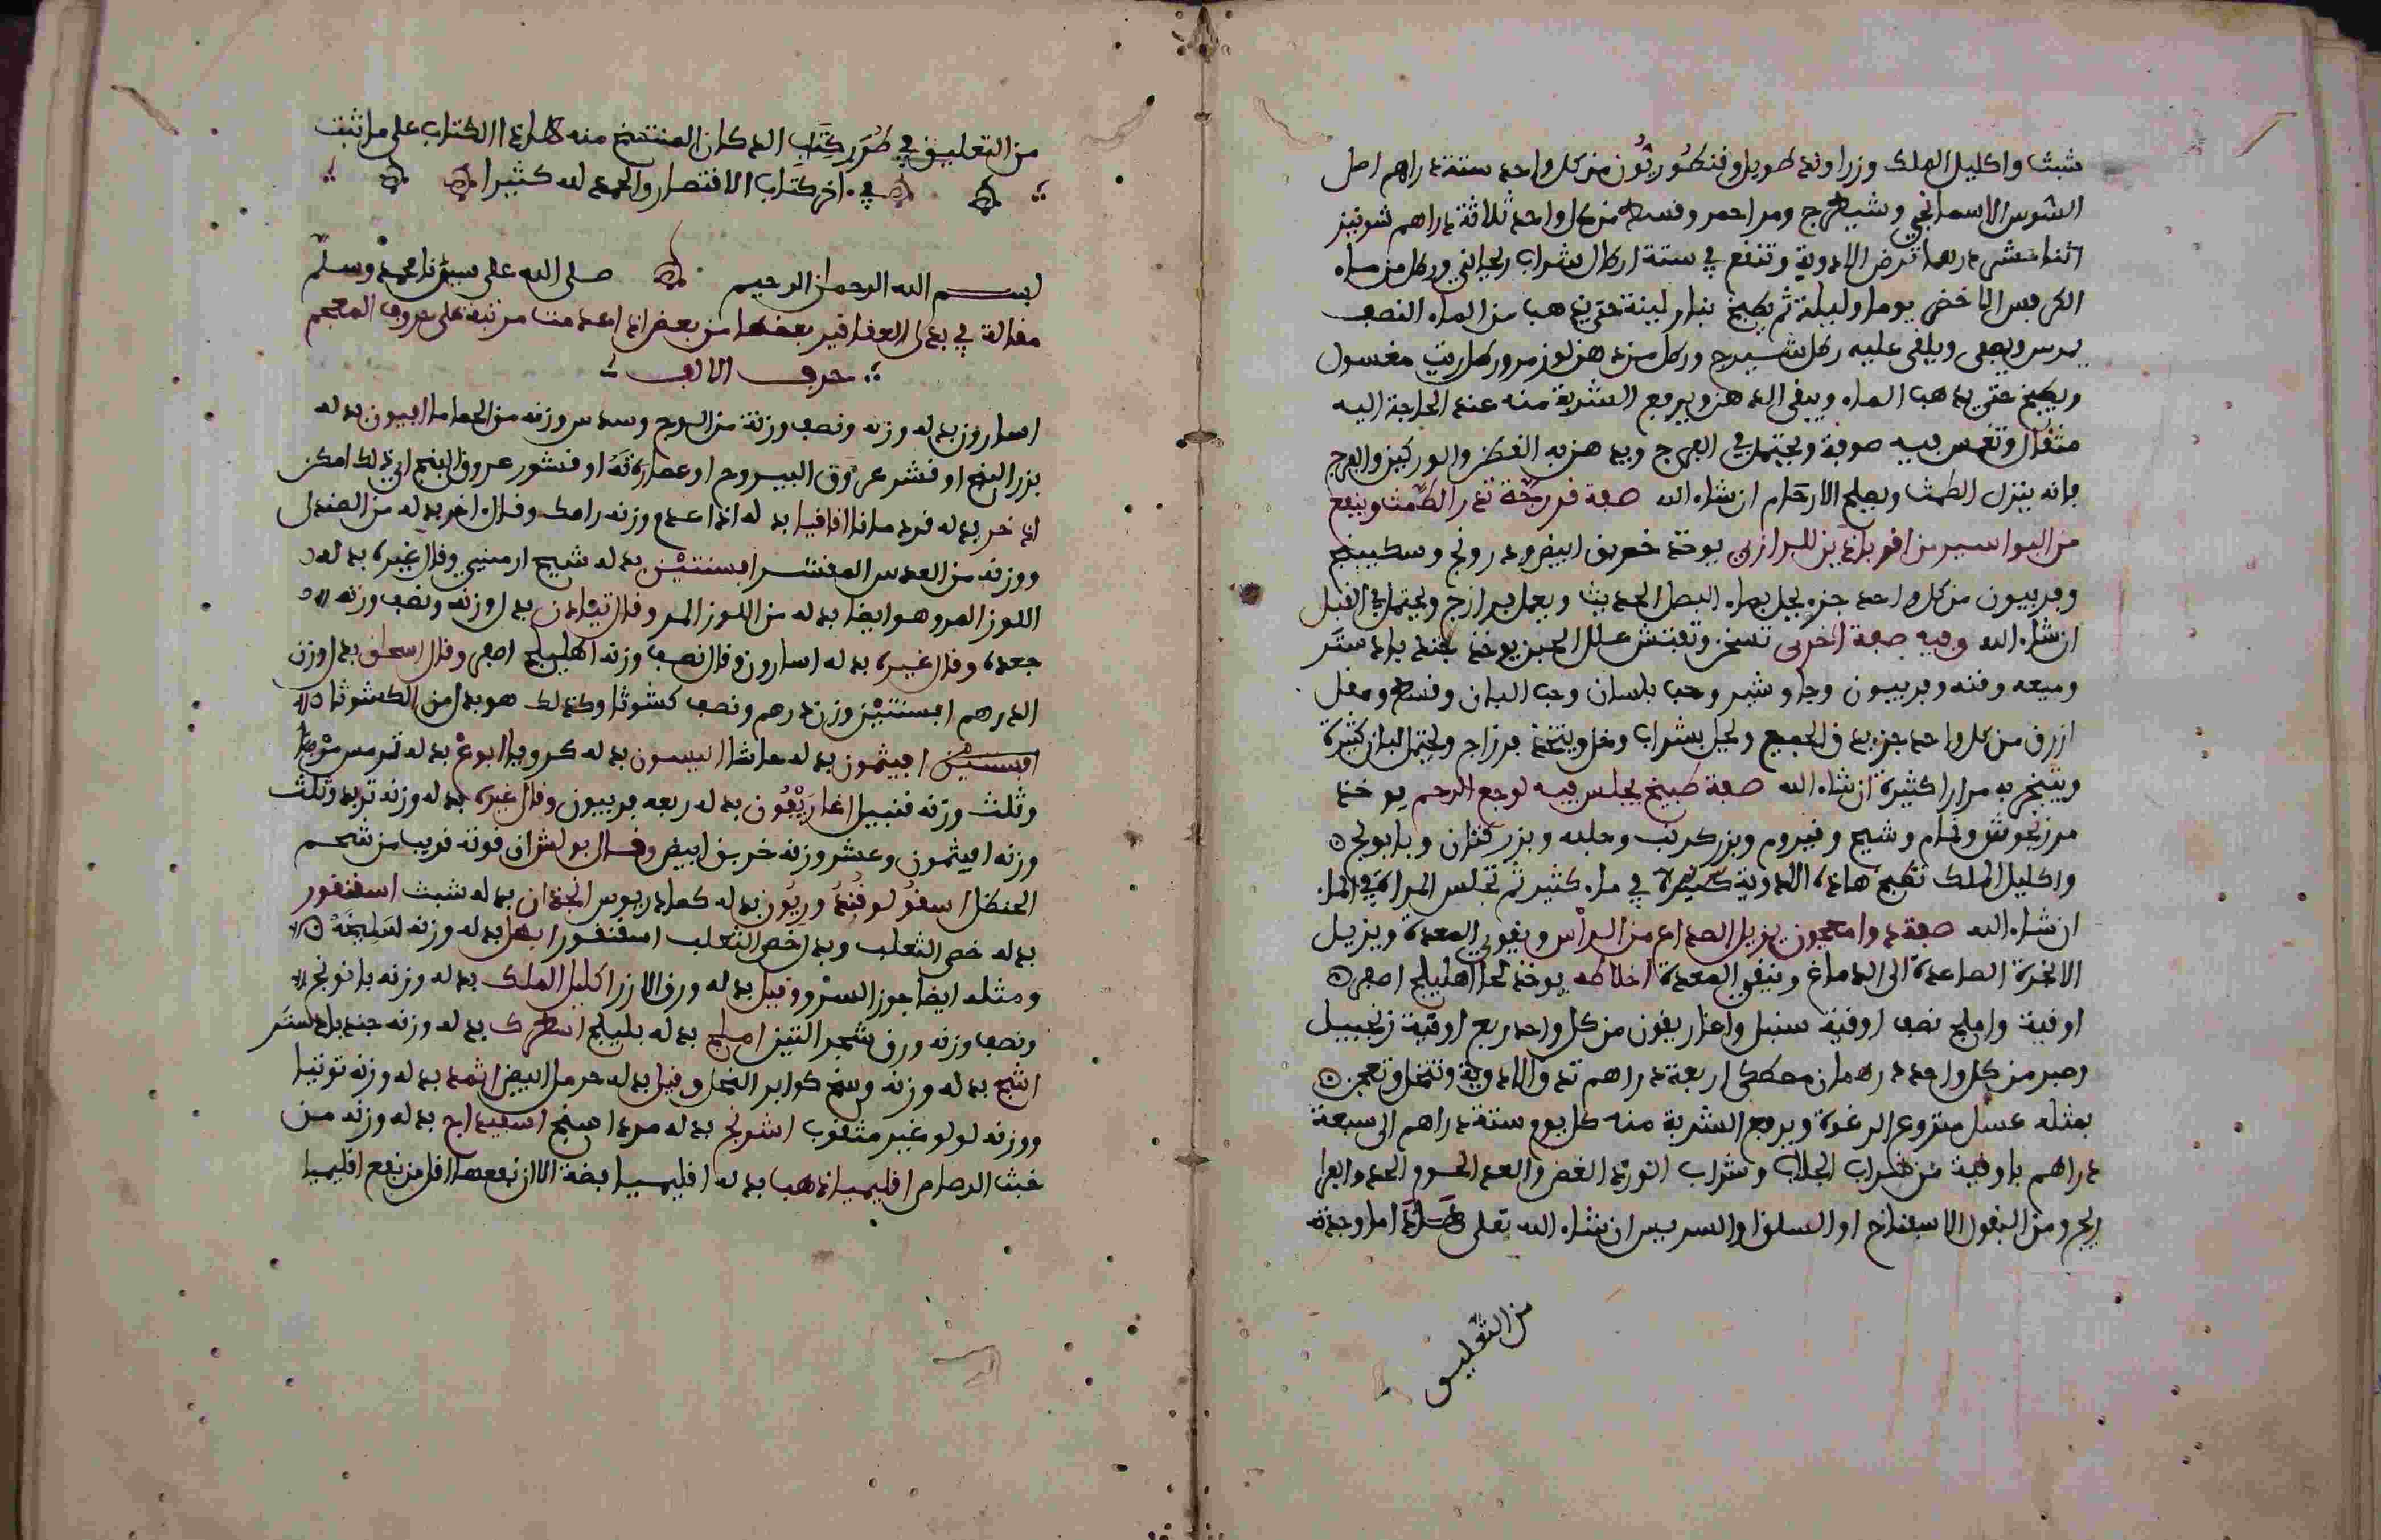 شبث واكليل الملك وزراوند طويل وقنطوريون من كل واحد ستة دراهم اصل
السوس الاسمانجوني وشيطرج ومر احمر وقسط من كل واحد ثلاثة دراهم شونيز
اثنا عشر درهما ترض الادوية وتنقع في ستة ارطال شراب ريحاني ورطل من ماء
الكرفس الاخضر يوما وليلة ثم يطبخ بنار لينة حتى يذهب من الماء النصف
يمرس ويصفى ويلقى عليه رطل شيرج ورطل من دهن لوز مر ورطل زيت مغسول
ويطبخ حتى يذهب الماء ويبقى الدهن ويرفع الشربة منه عند الحاجة اليه
مثقال وتغمس فيه صوفة وتحتمل في الفرج ويدهن به القطن والوركين والفرج
فانه ينزل الطمث ويصلح الارحام ان شاء الله صفة فرزجة تدر الطمث وينفع
من البواسير من اقرباذين للرازي يوخذ خربق ابيض ودرونج وسكبينج
وفربيون من كل واحد جزء يحل بماء البصل الحديث ويعمل فرازج ويحتمل في القبل
ان شاء الله وفيه صفة اخرى تسخن وتفتش علل الحبن يوخذ جند بادستر
وميعه وقنه وفربيون وجاوشير وحب بلسان وحب البان وقسط ومقل
ازرق من كل واحد جزء يدق الجميع ويحل بشراب وخل ويتخذ فرزاج ويحتمل لبان كثيرة
ويتبخر به مرارا كثيرة ان شاء الله صفة طبيخ يجلس فيه لوجع الرحم يوخذ
مرزنجوش ونمام وشيح وقيروم وبزر كرنب وحلبه وبزر كتان وبابونج
واكليل الملك تطبخ هاذه الادوية في ماء كثير ثم تجلس المراة في الماء
ان شاء الله صفة دوا معجون يزيل الصداع من الراس ويقوي المعدة ويزيل
الابخرة الصاعدة الى الدماغ وينقي المعدة اخلاطه يوخذ لحا اهليلج اصفر
اوقية واملج نصف اوقية سنبل واغاريقون من كل واحد ربع اوقية زنجبيل
وصبر من كل واحد درهمان مصطكى اربعة دراهم تدق الادوية وتنخل وتعجن
بمثله عسل منزوع الرغوة ويرفع الشربة منه كل يوم ستة دراهم الى سبعة
دراهم باوقية من شراب الجلاب وشراب الورد الغض والغذ لحوم الجدو الفرا
ريج ومن البقول الاسفناخ او السلق او السريس ان شاء الله تعلى هاذا ما وجدته
من التعليق
من التعليق في طرر كتاب الذي كان المنتسخ منه هاذا الكتاب على ما ثبت
في ءاخر كتاب الاقتصار والحمد لله كثيرا
بسم الله الرحمن الرحيم صلى الله على سيدنا محمد وسلم
مقالة في بدل العقاقير بعضها من بعض اذا عدمت مرتبة على حروف المعجم
حرف الالف
اسارون بدله وزنه ونصف وزنه من الوج وسدس وزنه من الحماما افيون بدله
بزر البنج او قشر عروق اليبروح او عصارته او قشور عروق البنج اي ذلك امكن
اذخر بدله قردمانا اقاقيا بدله اذا عدم وزنه رامك وقال اخر بدله من الصندل
ووزنه من العدس المقشر افسنتين بدله شيح ارميني وقال غيره بدله
اللوز المر وهو ايضا بدله من اللوز المر وقال بدل وزنه ونصف وزنه
جعده وقال غيره بدله اسارون وقال نصف وزنه اهليلج اصفر وقال اسحاق بدل وزن
الدرهم افسنتين وزن درهم ونصف كشوثا وكذلك هو بدل من الكشوثا
افسنتين افيثمون بدله حاشا انيسون بدله كرويا ابوغ بدله ترمس
وثلث وزنه قنبيل اغاريقون بدله ربعه فربيون وقال غيره بدله وزنه تربد وثلث
وزنه افيثمون وعشر وزنه خربق ابيض وقال بولش ان قوته قريب من شحم
الحنظل اسقولوقندوريون بدله كمادريوس انجذان بدله شبث اسقنقور
بدله خصى الثعلب وبدل خصى الثعلب اسقنقور ابهل بدله وزنه سليخة
ومثله ايضا جوز السرو وقيل بدله ورق الارز اكليل الملك بدله وزنه بابونج
ونصف وزنه ورق شجر التين املج بدله بليلج اسطرك بدله وزنه جندبادستر
اشج بدله وزنه وسخ كواير النحل وقيل بدله حرمل ابيض اثمد بدله وزنه توتيا
ووزنه لولو غير مثقوب اشرنج بدله مرداسنج اسفيداج بدله وزنه من
خبث الرصاص اقليميا ذهب بدله اقليميا فضة الا ان نفعها اقل من نفع اقليميا